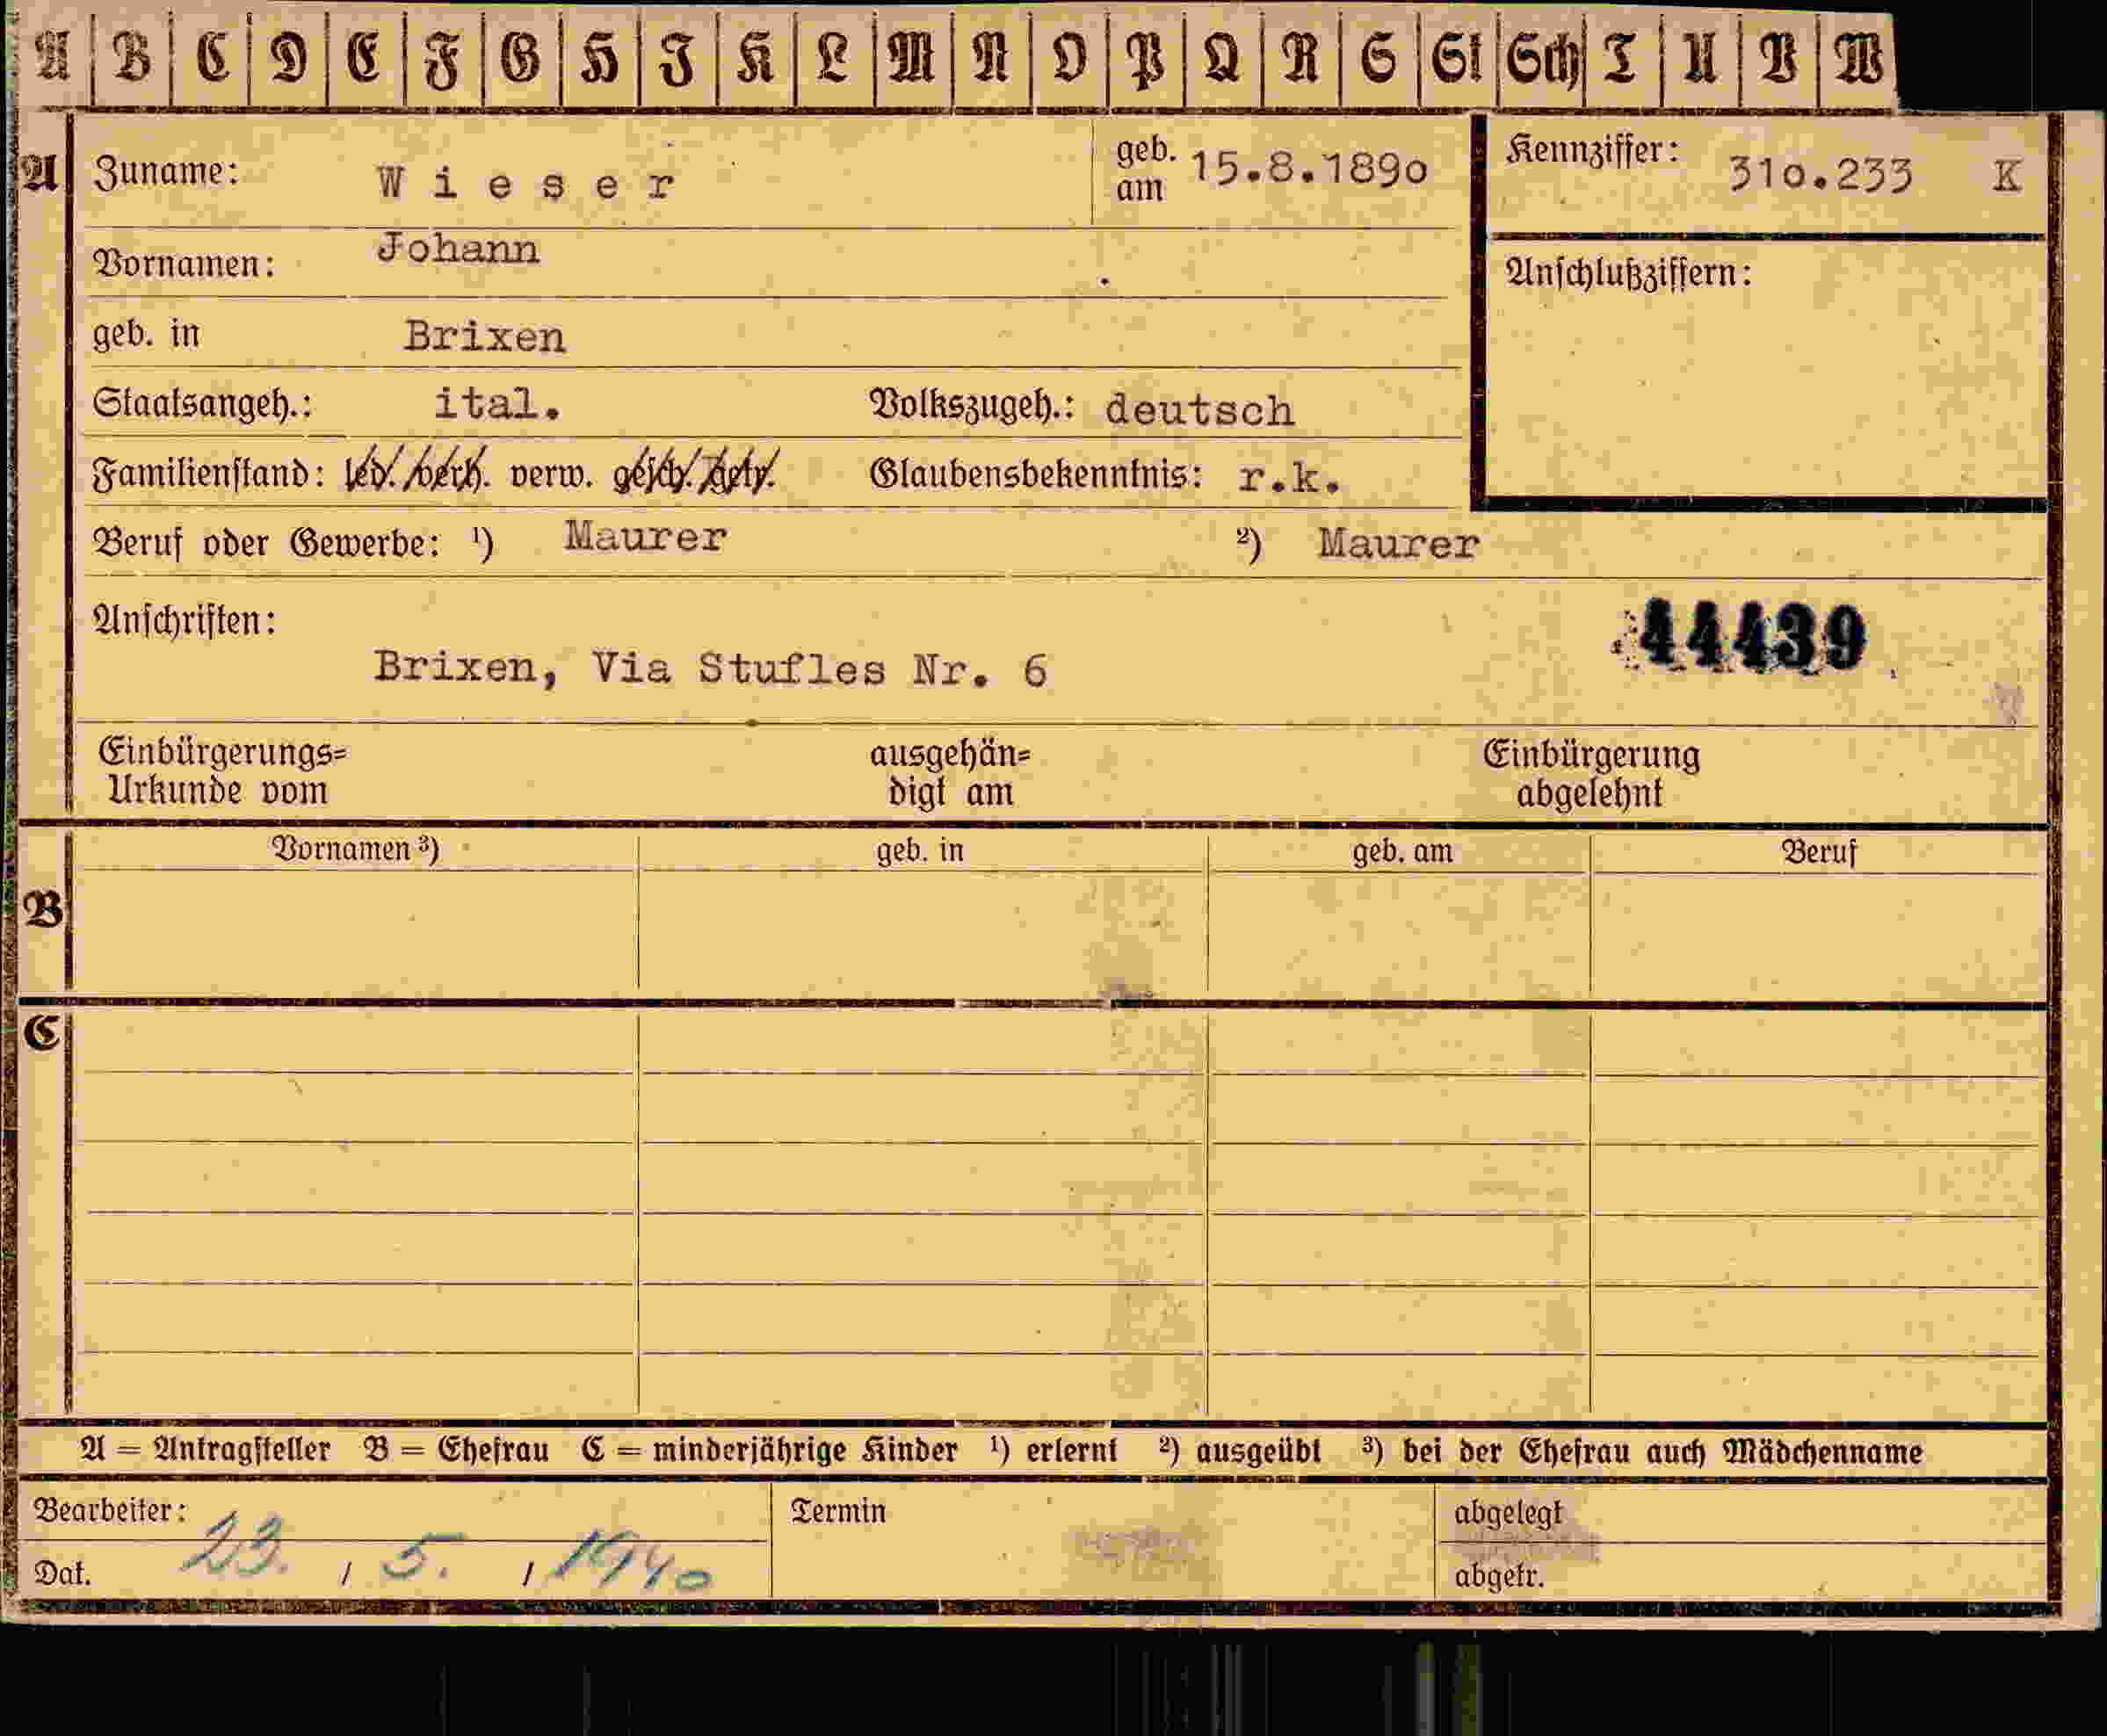 A B C D E F G H I K L M N O P Q R S St Sch T U V W
A Zuname: Wieser geb. am 15.8.1890 Kennziffer: 310.233 K
Vornamen: Johann Anschlußziffern:
geb. in Brixen
Staatsangeh.: ital. Volkszugeh.: deutsch
Familienstand: led. verh. verw. gesch. getr. Glaubensbekenntnis: r.k.
Beruf oder Gewerbe: ¹) Maurer ²) Maurer
Anschriften: 44439
Brixen, Via Stufles Nr. 6
Einbürgerungs= ausgehän= Einbürgerung
Urkunde vom digt am abgelehnt
Vornamen ³) geb. in geb. am Beruf
B
C
A = Antragsteller B = Ehefrau C = minderjährige Kinder ¹) erlernt ²) ausgeübt ³) bei der Ehefrau auch Mädchenname
Bearbeiter: Termin abgelegt
Dat. 23. / 5. / 1940 abgetr.